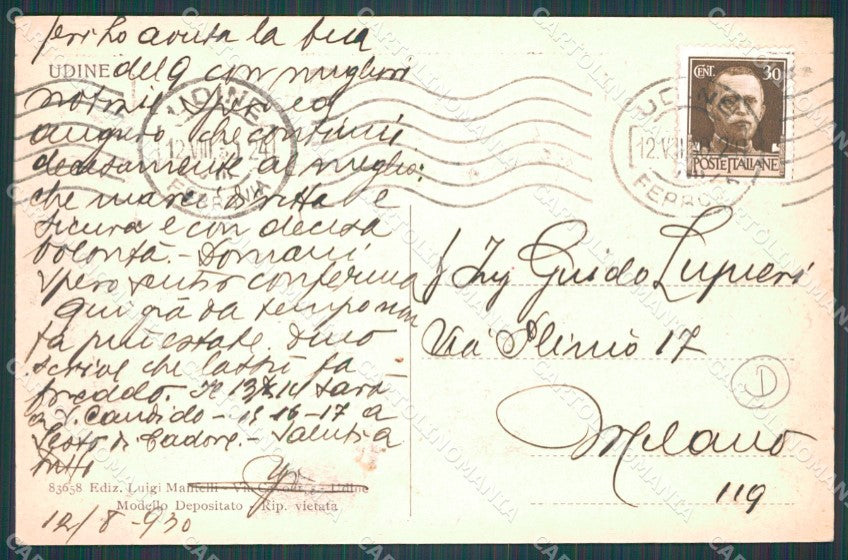 Ieri ho avuta la tua
UDINE
del 9 con migliori
notizie spero ed
auguro che continui
decisamente al meglio:
che marci diritta e
sicura e con decisa
volontà. - Domani
spero sentir conferma
Qui già da tempo non
fa più estate. Dino
scrive che lassù fa
freddo. Il 13 sarà
a S. Candido - 15 16-17 a
Sesto di Cadore. - Saluti a
tutti
83658 Ediz. Luigi Mantelli - Via Cavour, Udine
Modello Depositato - Rip. vietata
12/8-930
UDINE
12.VIII.30. 24
FERROVIA
UDINE
12.VIII
FERROVIA
CENT. 30
POSTE ITALIANE
Ing Guido Lupieri
Via Plinio 17
Milano
119
D
CARTOLINOMANIA